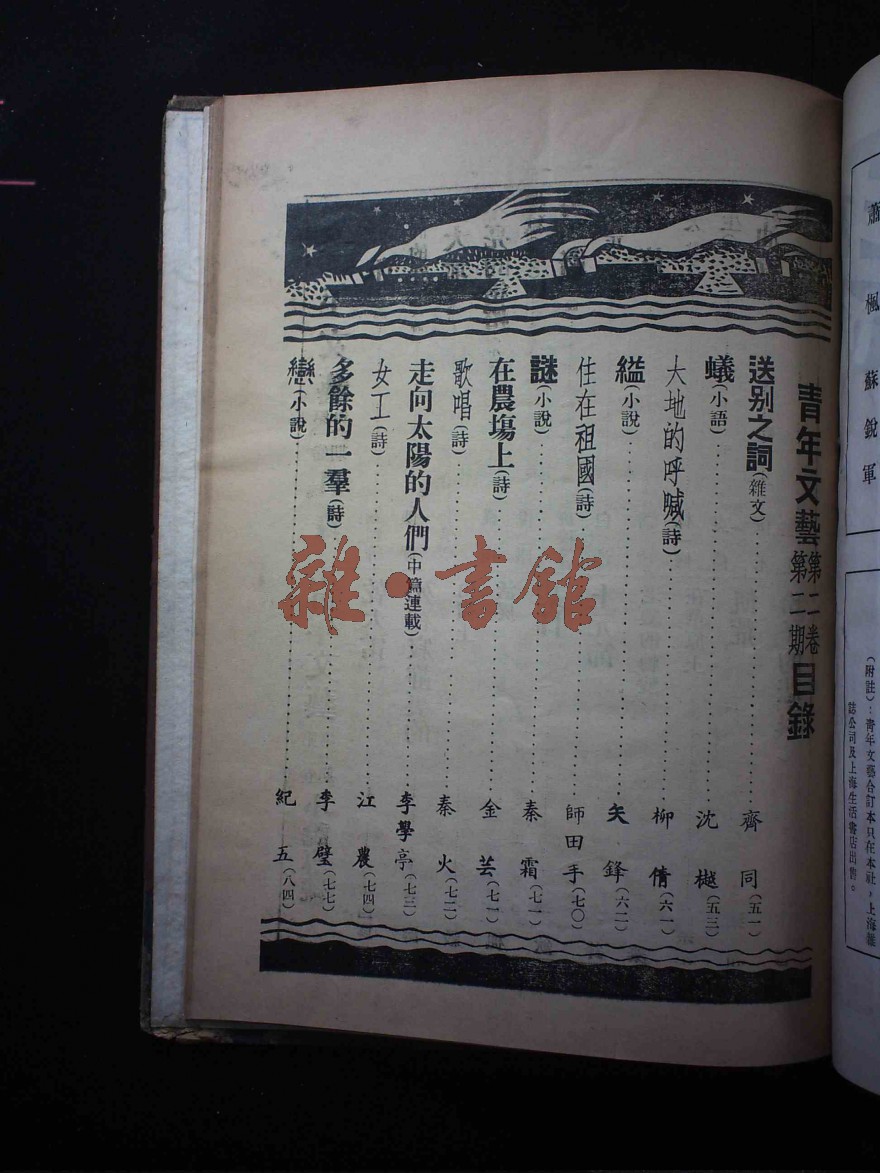 蕭楓蘇銳軍
（附註）：青年文藝合訂本只在本社，上海雜
誌公司及上海生活書店出售。
青年文藝第二卷第二期目錄
送別之詞(雜文)……齊同(五一)
蟻(小語)……沈樾(五三)
大地的呼喊(詩)……柳倩(六一)
縊(小說)……矢鋒(六二)
住在祖國(詩)……師田手(七〇)
謎(小說)……秦霜(七一)
在農塲上(詩)……金芸(七一)
歌唱(詩)……秦火(七二)
走向太陽的人們(中篇連載)……李學亭(七三)
女工(詩)……江農(七四)
多餘的一羣(詩)……李璧(七七)
戀(小說)……紀五(八四)
雜·書館